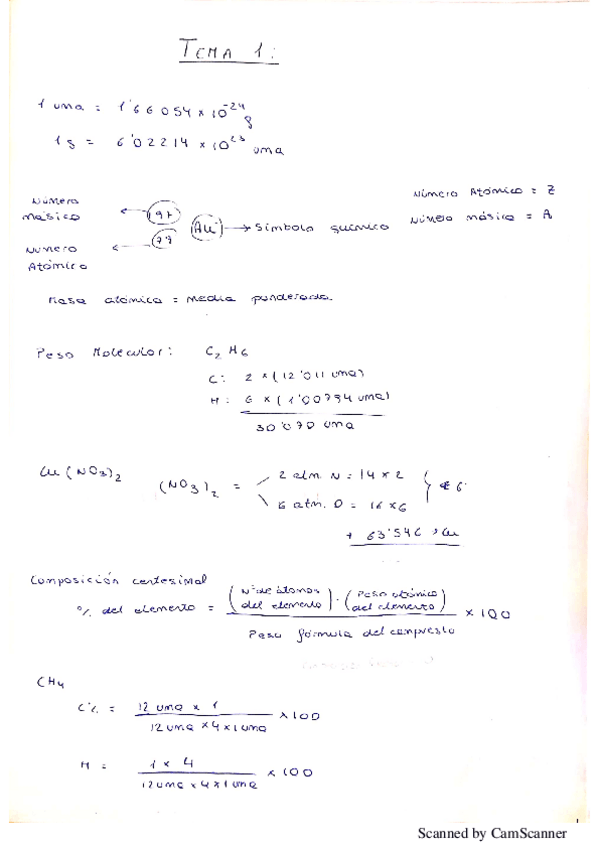 TEMA 1:
1 uma = 1'66054 x 10^-24 g
1g = 6'02214 x 10^23 uma
Número másico ← 197
Au → Símbolo químico
Número Atómico ←
Número Atómico = Z
Número másico = A
Masa atómica = media ponderada.
Peso Molecular: C2 H6
C: 2 x (12'011 uma)
H: 6 x (1'00794 uma)
30'070 uma
Cu (NO3)2
(NO3)2 =
2 atm. N = 14 x 2
6 atm. O = 16 x 6
+ 63'546
Composición centesimal
% del elemento = (Nº de átomos del elemento) · (Peso atómico del elemento) / Peso fórmula del compuesto x 100
CH4
C% = 12 uma x 1 / 12 uma x 4 x 1 uma x 100
H = 1 x 4 / 12 uma x 4 x 1 uma x 100
Scanned by CamScanner